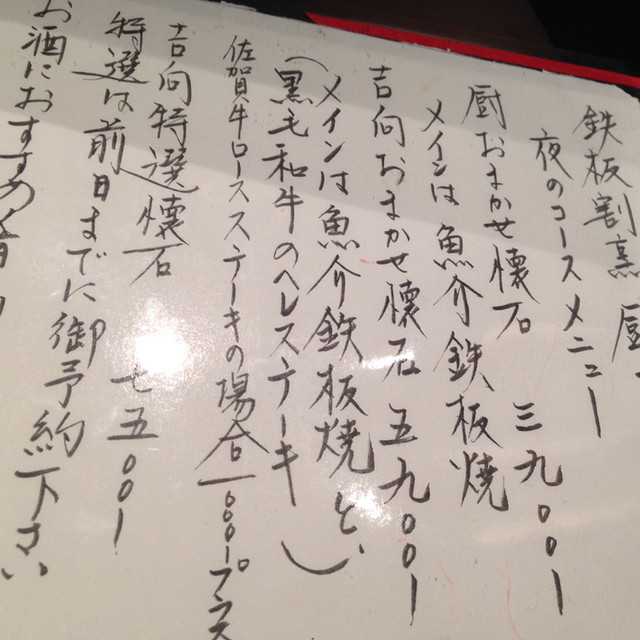 鉄板割烹 厨
夜のコースメニュー
厨おまかせ懐石 三九〇〇ー
メインは魚介鉄板焼
吉向おまかせ懐石 五九〇〇ー
メインは魚介鉄板焼と、
(黒毛和牛のヘレステーキ)
佐賀牛ロースステーキの場合一〇〇〇ープラス
吉向特選懐石 七五〇〇ー
特選は前日までに御予約下さい
お酒におすすめ